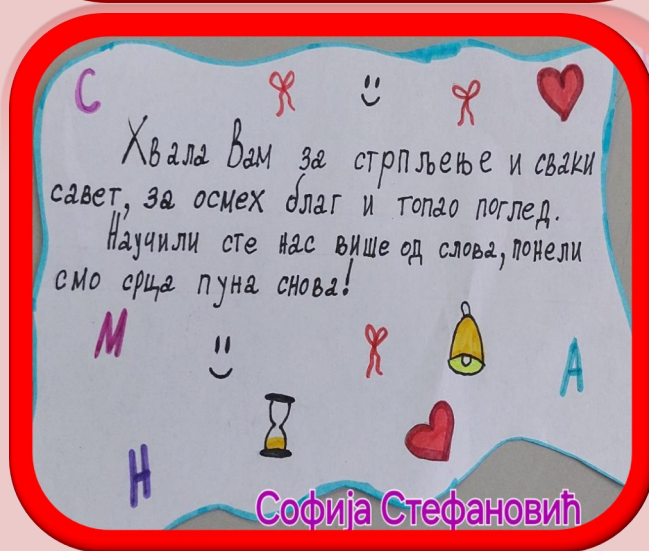 С
Хвала Вам за стрпљење и сваки
савет, за осмех благ и топао поглед.
Научили сте нас више од слова, понели
смо срца пуна снова!
М
А
Н
Софија Стефановић